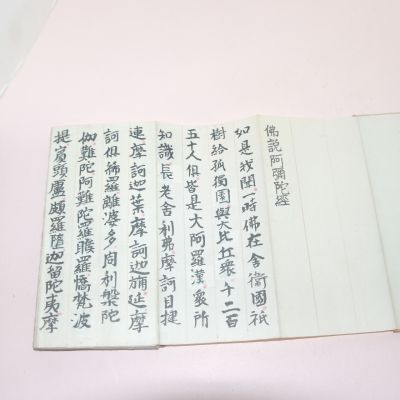 佛說阿彌陀經
如是我聞一時佛在舍衛國祇
樹給孤獨園與大比丘衆千二百
五十人俱皆是大阿羅漢衆所
知識長老舍利弗摩訶目犍
連摩訶迦葉摩訶迦旃延摩
訶俱絺羅離婆多周利槃陀
伽難陀阿難陀羅睺羅憍梵波
提賓頭盧頗羅墮迦留陀夷摩